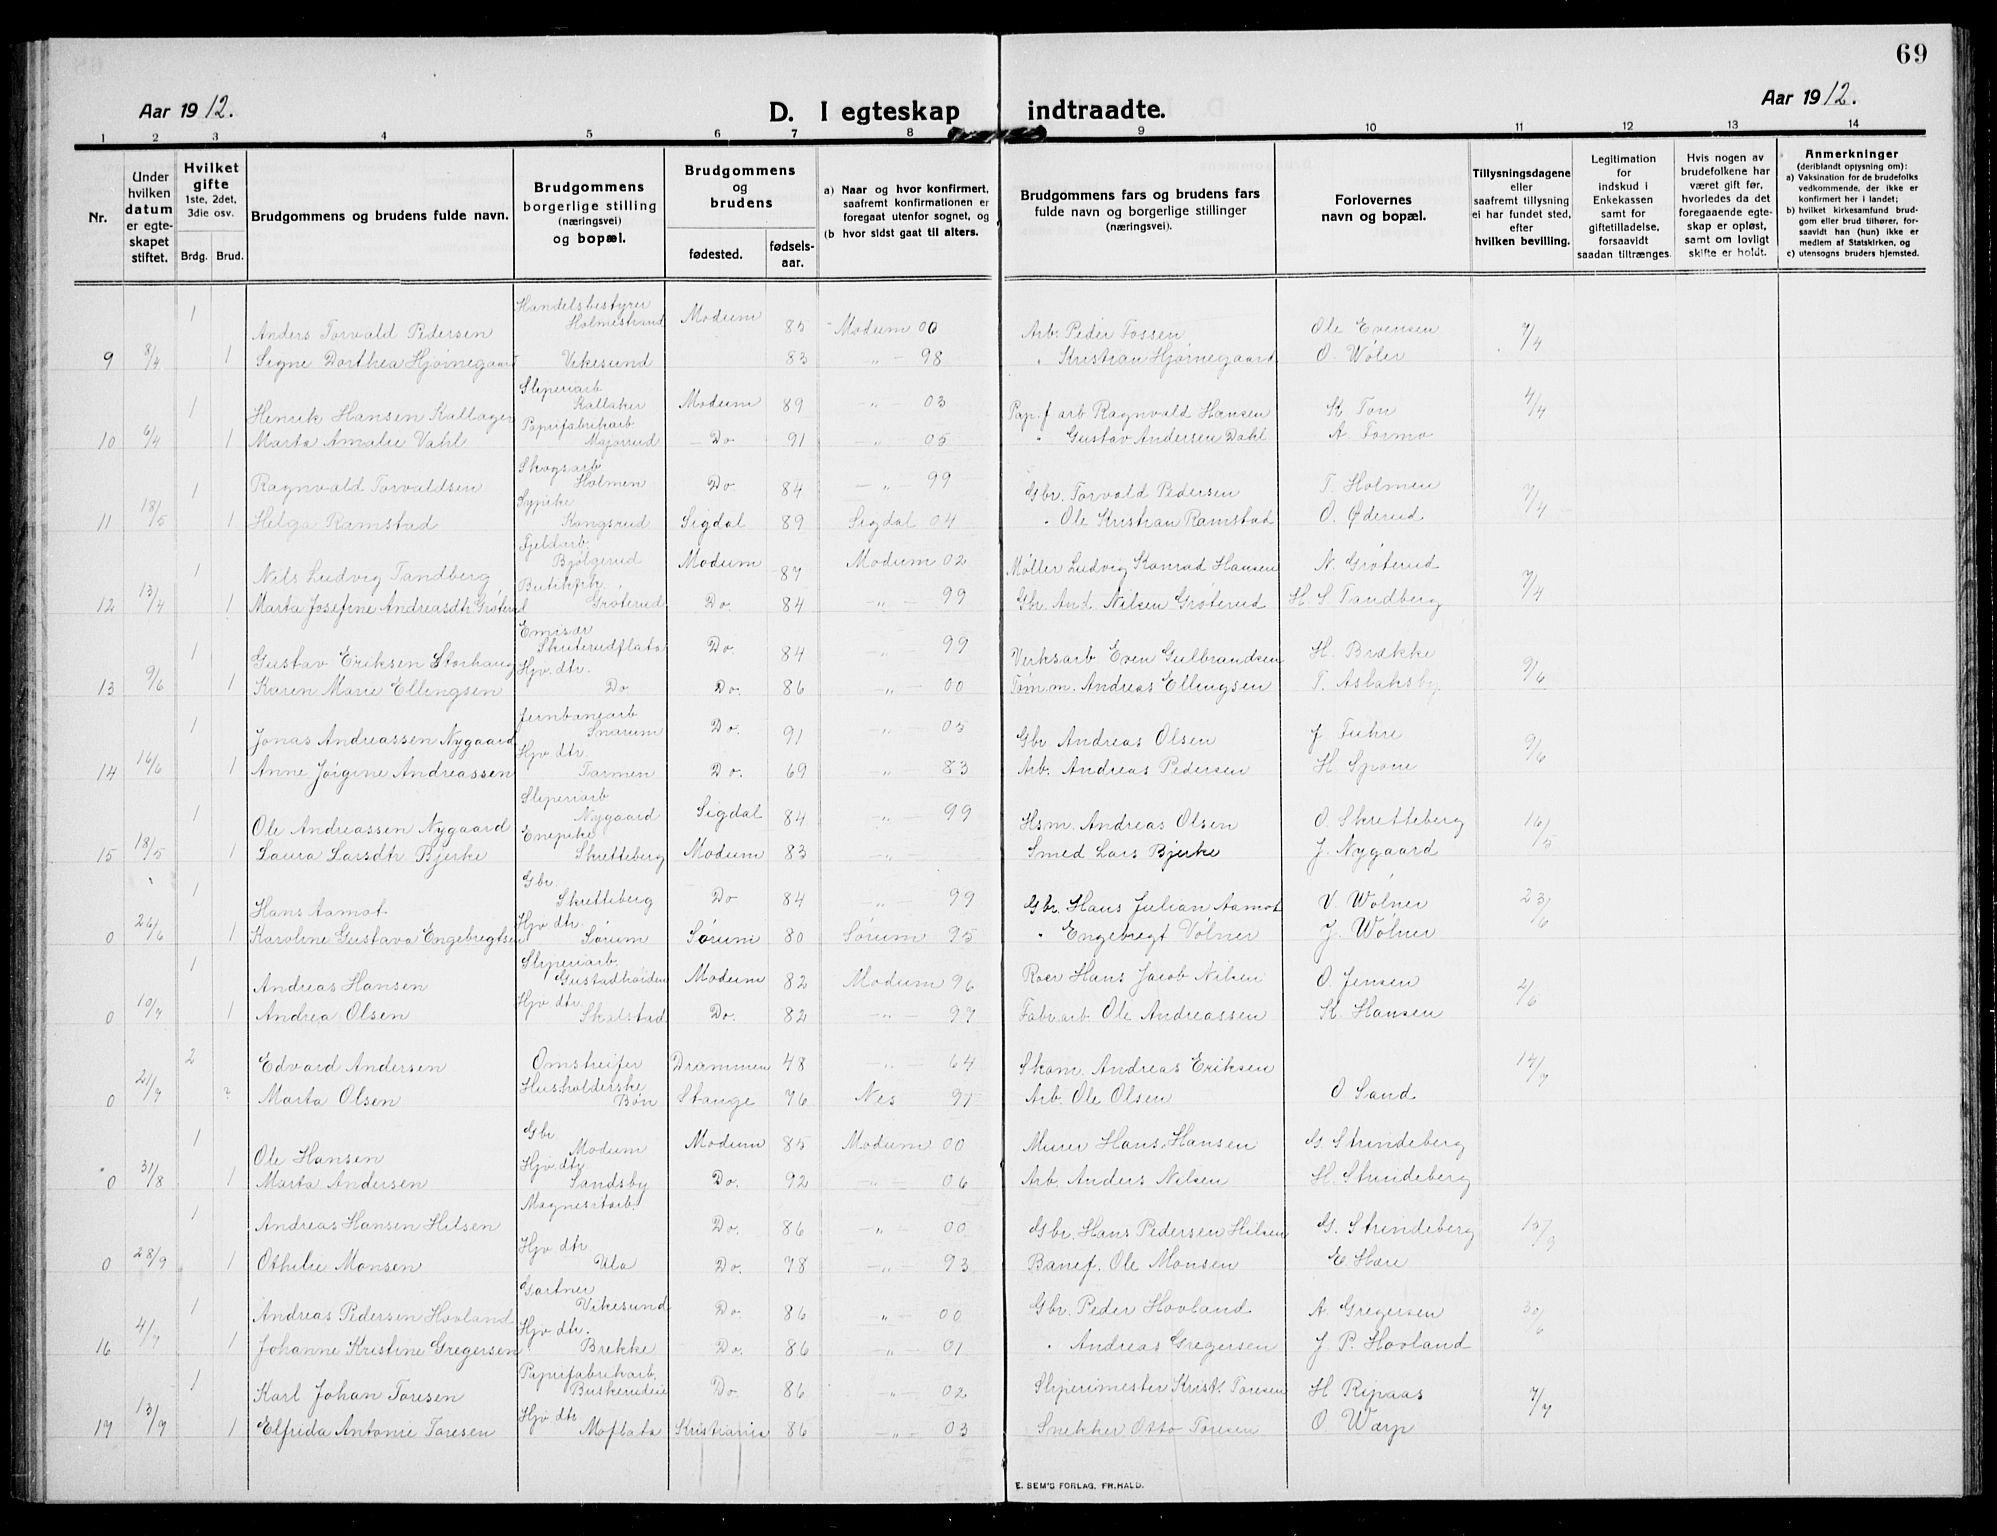 69
Aar 1912.
D. I egteskap indtraadte.
Aar 1912.
1 2 3 4 5 6 7 8 9 10 11 12 13 14
Nr.
Under hvilken datum er egte-skapet stiftet.
Hvilket gifte 1ste, 2det, 3die osv.
Brdg. Brud.
Brudgommens og brudens fulde navn.
Brudgommens borgerlige stilling (næringsvei) og bopæl.
Brudgommens og brudens
fødested. fødsels-aar.
a) Naar og hvor konfirmert, saafremt konfirmationen er foregaat utenfor sognet, og
(b hvor sidst gaat til alters.
Brudgommens fars og brudens fars fulde navn og borgerlige stillinger (næringsvei).
Forlovernes navn og bopæl.
Tillysningsdagene eller saafremt tillysning ei har fundet sted, efter hvilken bevilling.
Legitimation for indskud i Enkekassen samt for giftetilladelse, forsaavidt saadan tiltrænges.
Hvis nogen av brudefolkene har været gift før, hvorledes da det foregaaende egte-skap er opløst, samt om lovligt skifte er holdt.
Anmerkninger (deriblandt oplysning om):
a) Vaksination for de brudefolks vedkommende, der ikke er konfirmert her i landet;
b) hvilket kirkesamfund brud-gom eller brud tilhører, for-saavidt han (hun) ikke er medlem af Statskirken, og
c) utensogns bruders hjemsted.
1 Anders Torvald Pedersen Handelsbestyrer Holmestrand Modum 85 Modum 00 Arb. Peder Fossen Ole Evensen 7/4
9 8/4 1 Signe Dorthea Hjørnegaard Vikesund 83 " - 98 " Kristian Hjørnegaard O. Wøler
1 Henrik Hansen Kallager Sliperiarb Kallaker Modum 89 - " - 03 Pap. f arb Ragnvald Hansen K Ton 4/4
10 6/4 1 Marta Amalie Vahl Papirfabrikarb Majorrud Do 91 " 05 " Gustav Andersen Dahl A. Formo
1 Ragnvald Torvaldsen Skogsarb Holmen Do. 84 - " - 99 Gbr. Torvald Pedersen T. Holmen 7/4
11 18/5 1 Helga Ramstad Sypike Kongsrud Sigdal 89 Sigdal 04 " Ole Kristian Ramstad O. Øderud
1 Nils Ludvig Tandberg Fjeldarb. Bjølgerud Modum 87 Modum 02 Møller Ludvig Konrad Hansen N. Grøterud 7/4
12 13/4 1 Marta Josefine Andreasdtr Grøterud Grøterud Do. 84 - " - 99 Gbr. And. Nilsen Grøterud H S Tandberg
1 Gustav Eriksen Storhaug Emisær Skuterudflata Do 84 - " - 99 Verksarb Even Gulbrandsen H. Brække 9/6
13 9/6 1 Karen Marie Ellingsen Hjv. dtr. Do. Do. 86 - " - 00 Tøm.m. Andreas Ellingsen T. Aslaksby
1 Jonas Andreassen Nygaard Jernbanearb Snarum Do. 91 - " - 05 Gbr Andreas Olsen J Fuhre 9/6
14 16/6 1 Anne Jørgine Andreassen Hjv dtr. Farmen Do. 69 " 83 Arb. Andreas Pedersen H. Spone
1 Ole Andreassen Nygaard Sliperiarb Nygaard Sigdal 84 - " - 99 Hsm. Andreas Olsen O. Skretteberg 16/5
15 18/5 1 Laura Larsdtr Bjerke Enepike Skretteberg Modum 83 - " - Smed Lars Bjerke J. Nygaard
1 Hans Aamot Gbr Skretteberg Do 84 - " - 99 Gbr. Hans Julian Aamot V. Wølner 23/6
0 26/6 1 Karoline Gustava Engebregtsen Hjv dtr. Sørum Sørum 80 Sørum 95 " Engebregt Vølner J. Wølner
1 Andreas Hansen Sliperiarb. Gustadhøiden Modum 82 Modum 96 Roer Hans Jacob Nilsen O. Jensen 2/6
0 10/7 1 Andrea Olsen Hjv dtr. Skalstad Do. 82 - " - 97 Fabr.arb Ole Andreassen K. Hansen
2 Edvard Andersen Omstreifer Drammen 48 - " - 64 Skom. Andreas Eriksen 14/7
0 21/7 ? Marta Olsen Husholderske Bøn Stange 76 Nes 91 Arb. Ole Olsen O Sand
1 Ole Hansen Gbr Modum Modum 85 Modum 00 Murer Hans Hansen G Strindeberg
0 31/8 1 Marta Andersen Hjv. dtr. Sandsby Do. 92 - " - 06 Arb. Anders Nilsen H. Strindeberg
1 Andreas Hansen Hilsen Magnesitarb. Do. 86 - " - 00 Gbr. Hans Pedersen Hilsen G. Strindeberg 15/9
0 28/9 1 Othilie Monsen Hjv dtr Ula Do. 78 - " - 93 Banef. Ole Monsen E. Hære
1 Andreas Pedersen Hovland Gartner Vikesund Do. 86 " 00 Gbr. Peder Hovland A. Gregersen 30/6
16 4/7 1 Johanne Kristine Gregersen Hjv dtr. Brekke Do. 86 - " - 01 " Andreas Gregersen J P. Hovland
1 Karl Johan Toresen Papirfabrikarb. Buskerudeie Do. 86 - " - 02 Sliperimester Krist. Toresen H Ripaas 7/7
17 13/9 1 Elfrida Antonie Toresen Hjv dtr Moflata Kristiania 86 - " - 03 Snekker Otto Toresen O. Warp
E. SEM'S FORLAG, FR.HALD.